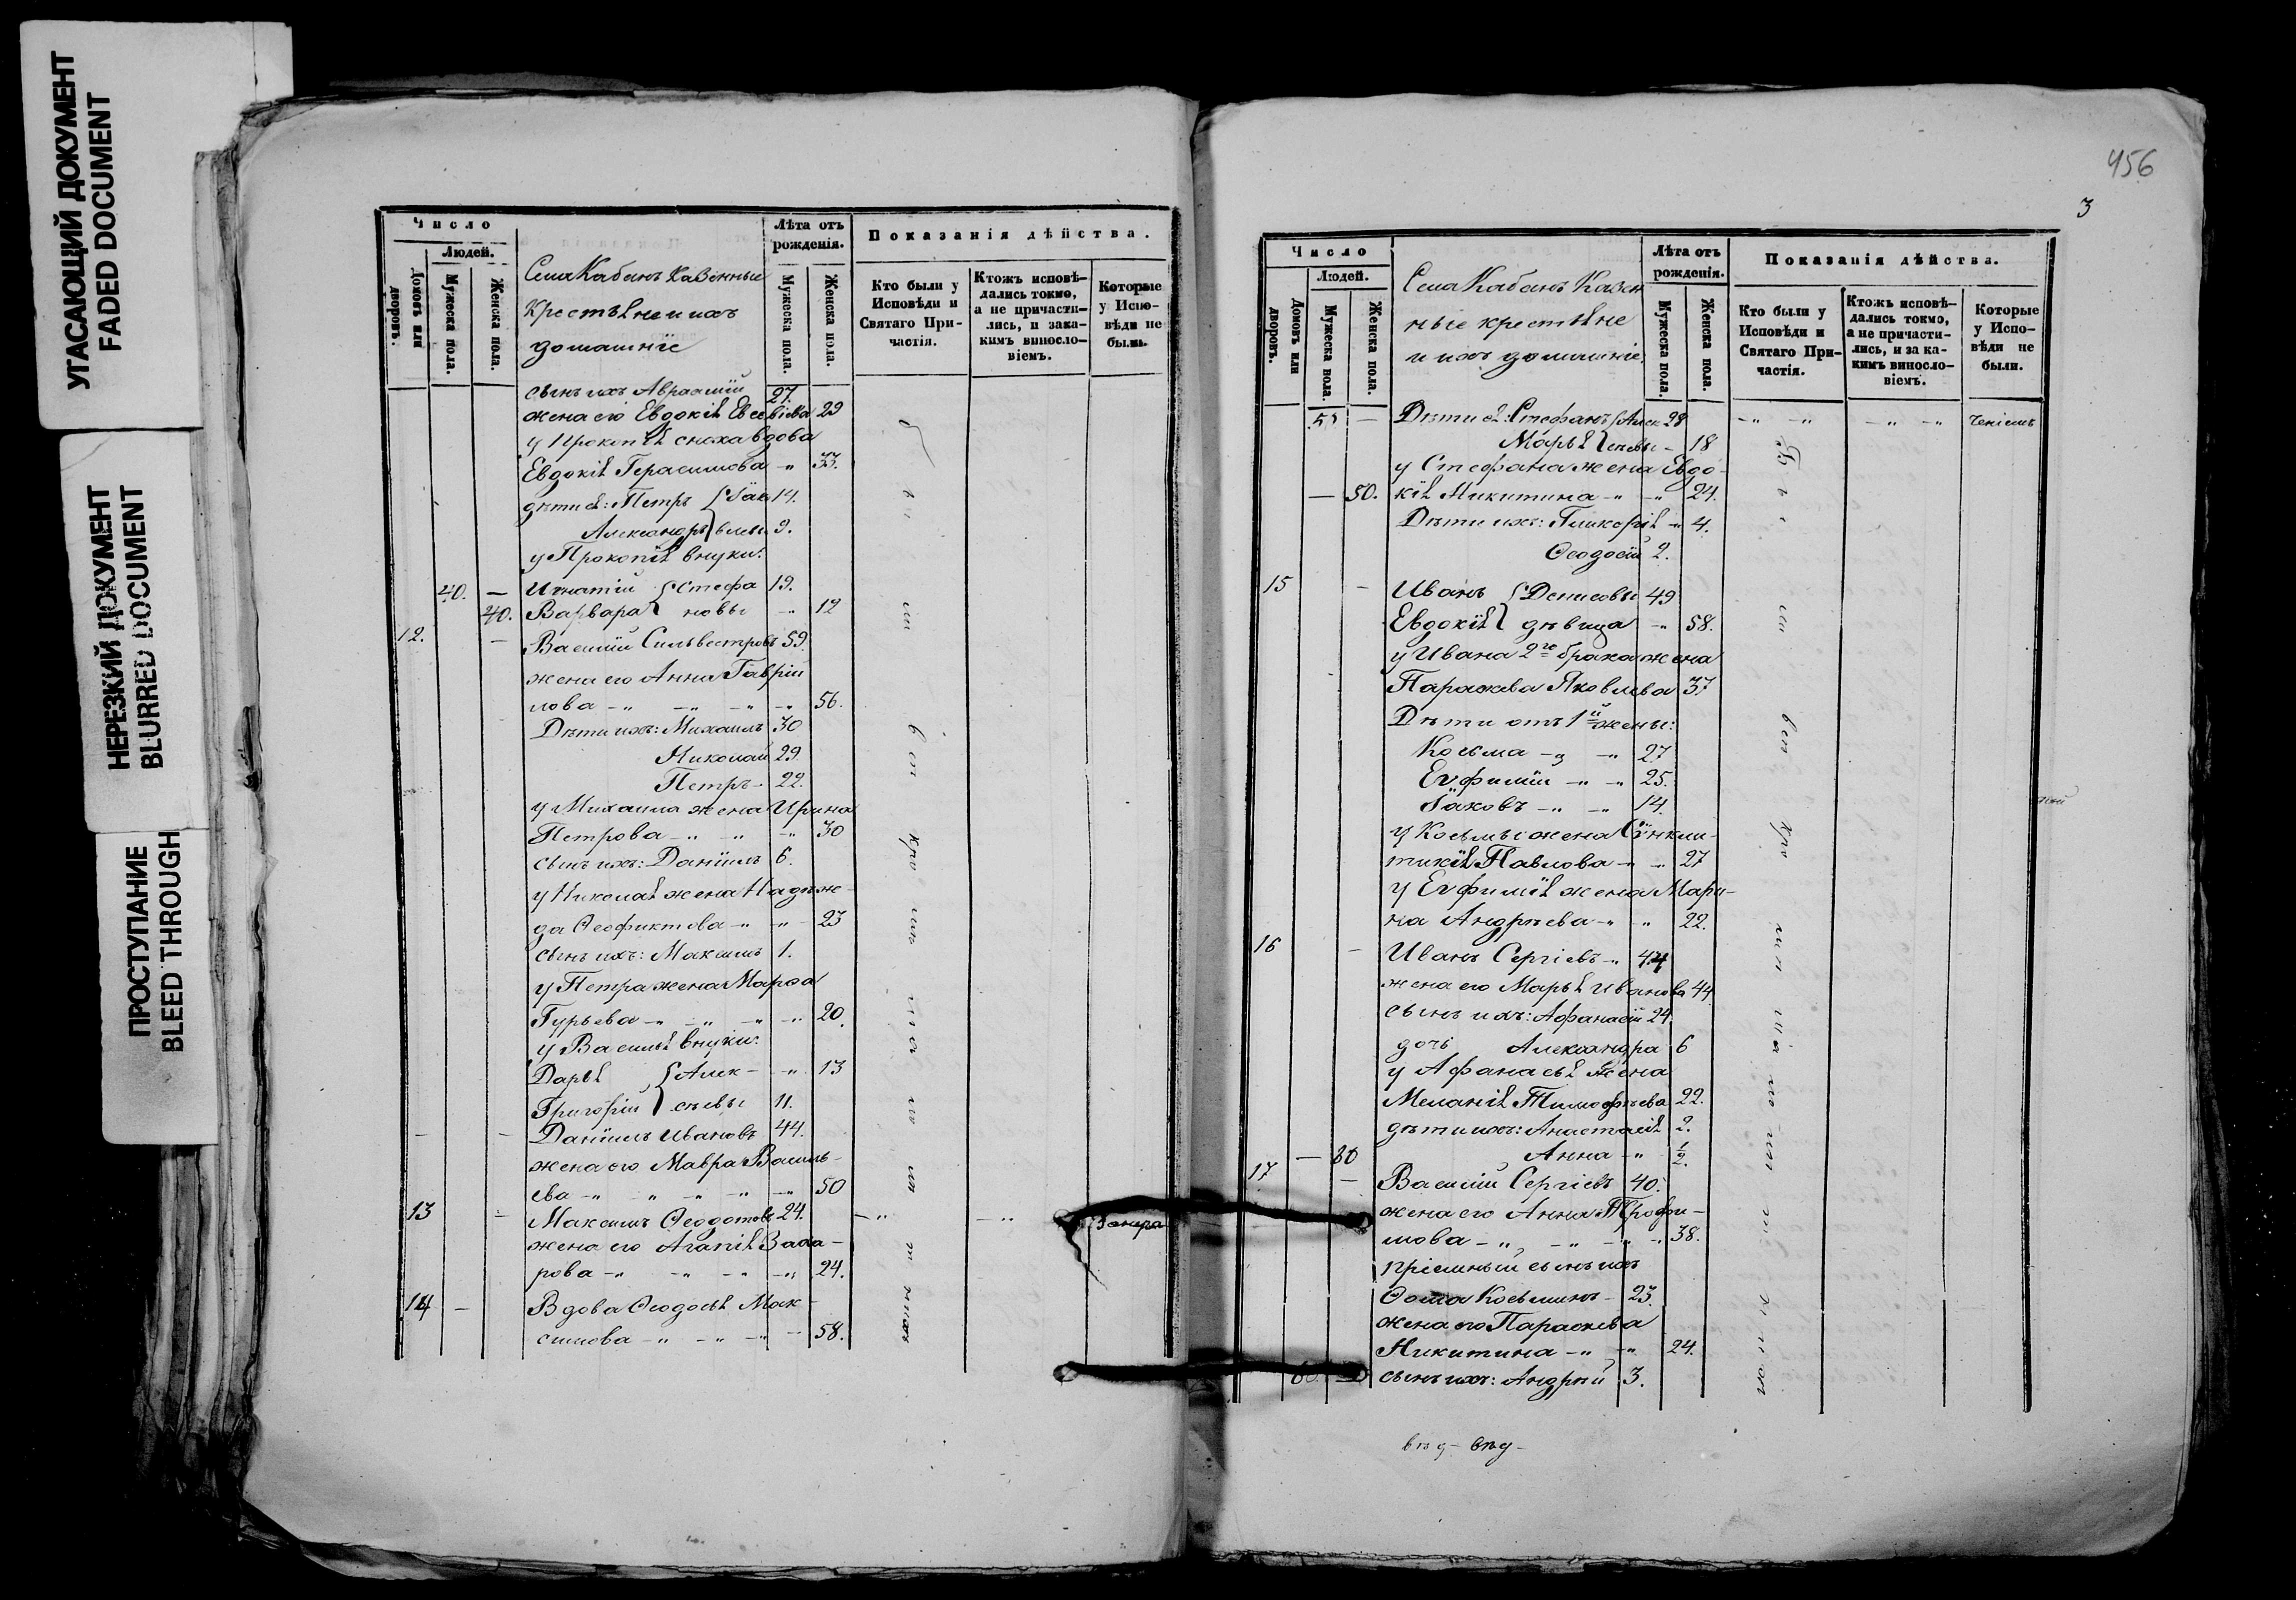 УГАСАЮЩИЙ ДОКУМЕНТ
FADED DOCUMENT
НЕРЕЗКИЙ ДОКУМЕНТ
BLURRED DOCUMENT
ПРОСТУПАНИЕ
BLEED THROUGH
Число
Людей.
Домовъ или дворовъ.
Мужеска пола.
Женска пола.
Села Кабанъ Казенныи
Крестьяне и ихъ
домашніе
Лѣта отъ рожденія.
Мужеска пола.
Женска пола.
Показанія дѣйства.
Кто были у Исповѣди и Святаго Причастія.
Ктожъ исповѣ-
дались токмо,
а не причасти-
лись, и зака-
кимъ винословіемъ.
Которые у Испо-
вѣди не были.
сынъ ихъ Авраамій 27.
жена его Евдокія Евсевіева 29
у Прокопія сноха вдова
Евдокія Герасимова -„ 33.
дѣти ея: Петръ Іак 14.
Александръ влевы 9.
у Прокопія внуки:
40. — Игнатій Стефа 19.
40. Варвара новы -„ 12
12. — Василій Сильвестровъ 59.
жена его Анна Гавріи
лова -„ -„ -„ -„ 56.
Дѣти ихъ: Михаилъ 30
Николай 29.
Петръ - 22.
у Михаила жена Ирина
Петрова -„ -„ -„ 30
сынъ ихъ: Даніилъ 6.
у Николая жена Надеж-
да Ѳеофиктова -„ -„ 23
сынъ ихъ: Максимъ 1.
у Петра жена Марѳа
Гурьева -„ -„ -„ -„ 20.
у Василія внуки:
Дарья Алек- -„ 13
Григорій сѣевы 11.
— — Даніилъ Ивановъ 44.
жена его Мавра Василь-
ева -„ -„ -„ -„ -„ 50
13 — Максимъ Ѳеодотовъ 24. -„ -„
жена его Агапія Заха-
рова -„ -„ -„ -„ 24.
14 — Вдова Ѳеодосія Мак-
симова -„ -„ -„ - 58.
456
3
Число
Людей.
Домовъ или дворовъ.
Мужеска пола.
Женска пола.
Села Кабанъ Казен
ные крестьяне
и ихъ домашніе
Лѣта отъ рожденія.
Мужеска пола.
Женска пола.
Показанія дѣйства.
Кто были у Исповѣди и Святаго Причастія.
Ктожъ исповѣ-
дались токмо,
а не причасти-
лись, и за ка-
кимъ винословіемъ.
Которые у Испо-
вѣди не были.
— Дѣти ея: Стефанъ Алек 28 -„ -„ -„ -„
Марья сѣевы - 18
у Стефана жена Евдо-
— 50. кія Никитина -„ -„ 24.
Дѣти ихъ: Гликерія -„ 4.
Ѳеодосій 2.
15 — Иванъ Денисовы 49
Евдокія дѣвица -„ 58.
у Ивана 2го брака жена
Параскева Яковлева 37.
Дѣти отъ 1й жены:
Косьма -„ -„ 27
Евфимій -„ -„ 25.
Іаковъ -„ -„ 14.
у Косьмы жена Синкли-
тикія Павлова -„ -„ 27
у Евфимія жена Мари-
на Андрѣева -„ -„ 22.
16 — Иванъ Сергіевъ -„ 44
жена его Марья Иванова 44
сынъ ихъ: Аѳанасій 24.
дочь Александра 6
у Аѳанасія жена
Меланія Тимоѳѣева 22.
дѣти ихъ: Анастасія 2.
— 60 Анна -„ ½.
17 — Василій Сергіевъ 40.
жена его Анна Трофи-
мова -„ -„ -„ -„ 38.
пріемный сынъ ихъ
Ѳома Косьминъ - 23.
жена его Параскева
Никитина -„ -„ 24.
60. — сынъ ихъ: Андрей 3.